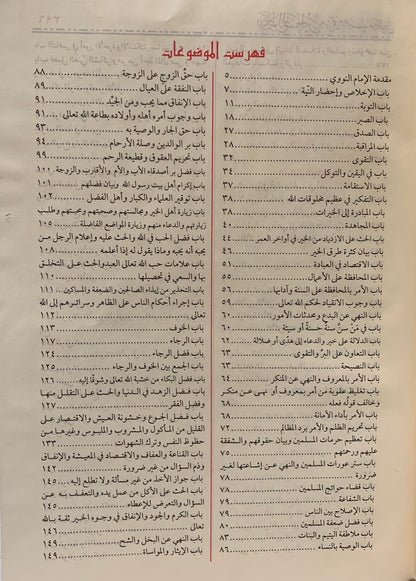 فهرست الموضوعات
مقدمة الإمام النووي ........ ٥
باب الإخلاص وإحضار النية ........ ٧
باب التوبة ........ ١١
باب الصبر ........ ١٨
باب الصدق ........ ٢٧
باب المراقبة ........ ٢٨
باب التقوى ........ ٣٢
باب في اليقين والتوكل ........ ٣٤
باب الاستقامة ........ ٣٧
باب التفكير في عظيم مخلوقات الله ........ ٣٨
باب المبادرة إلى الخيرات ........ ٣٨
باب المجاهدة ........ ٤٠
باب الحث على الازدياد من الخير في أواخر العمر .. ٤٤
باب بيان كثرة طرق الخير ........ ٤٦
باب الاقتصاد في العبادة ........ ٥١
باب المحافظة على الأعمال ........ ٥٥
باب الأمر بالمحافظة على السنة وآدابها ........ ٥٦
باب وجوب الانقياد لحكم الله تعالى ........ ٥٩
باب النهي عن البدع ومحدثات الأمور ........ ٦٠
باب في مَنْ سنَّ سنَّة حسنةً أو سيئة ........ ٦٠
باب الدلالة على خير والدعاء إلى هدًى أو ضلالة .. ٦٢
باب التعاون على البرِّ والتقوى ........ ٦٣
باب النصيحة ........ ٦٣
باب الأمر بالمعروف والنهي عن المنكر ........ ٦٤
باب تغليظ عقوبة من أمر بمعروف أو نهى عن منكر
وخالف قوله فعله ........ ٦٨
باب الأمر بأداء الأمانة ........ ٦٨
باب تحريم الظلم والأمر برد المظالم ........ ٧٢
باب تعظيم حرمات المسلمين وبيان حقوقهم والشفقة
عليهم ورحمتهم ........ ٧٥
باب ستر عورات المسلمين والنهي عن إشاعتها لغير
ضرورة ........ ٧٨
باب قضاء حوائج المسلمين ........ ٧٨
باب الشفاعة ........ ٧٩
باب الإصلاح بين الناس ........ ٧٩
باب فضل ضعفة المسلمين ........ ٨٠
باب ملاطفة اليتيم والبنات ........ ٨٣
باب الوصية بالنساء ........ ٨٦
باب حقِّ الزوج على الزوجة ........ ٨٨
باب النفقة على العيال ........ ٨٩
باب الإنفاق مما يحب ومن الجيِّد ........ ٩١
باب وجوب أمره أهله وأولاده بطاعة الله تعالى .. ٩١
باب حق الجار والوصية به ........ ٩٣
باب بر الوالدين وصلة الأرحام ........ ٩٤
باب تحريم العقوق وقطيعة الرحم ........ ٩٩
باب فضل بر أصدقاء الأب والأم والأقارب والزوجة .. ١٠٠
باب إكرام أهل بيت رسول الله وبيان فضلهم .. ١٠١
باب توقير العلماء والكبار وأهل الفضل ........ ١٠٢
باب زيارة أهل الخير ومجالستهم وصحبتهم ومحبتهم وطلب
زيارتهم والدعاء منهم وزيارة المواضع الفاضلة .. ١٠٥
باب فضل الحب في الله والحث عليه وإعلام الرجل من
يحبه أنه يحبه وماذا يقول له إذا أعلمه ........ ١٠٨
باب علامات حب الله تعالى العبد والحث على التخلق
بها والسعي في تحصيلها ........ ١١٠
باب التحذير من إيذاء الصالحين والضعفة والمساكين ١١١
باب إجراء أحكام الناس على الظاهر وسرائرهم إلى الله
تعالى ........ ١١٢
باب الخوف ........ ١١٣
باب الرجاء ........ ١١٧
باب فضل الرجاء ........ ١٢٤
باب الجمع بين الخوف والرجاء ........ ١٢٥
باب فضل البكاء من خشية الله تعالى وشوقًا إليه .. ١٢٦
باب فضل الزهد في الدنيا والحث على التقلل منها
وفضل الفقر ........ ١٢٧
باب فضل الجوع وخشونة العيش والاقتصار على
القليل من المأكول والمشروب والملبوس وغيرها من
حظوظ النفس وترك الشهوات ........ ١٣٣
باب القناعة والعفاف والاقتصاد في المعيشة والإنفاق
وذم السؤال من غير ضرورة ........ ١٤٢
باب جواز الأخذ من غير مسألة ولا تطلع إليه ... ١٤٥
باب الحث على الأكل من عمل يده والتعفف به عن
السؤال والتعرض للإعطاء ........ ١٤٥
باب الكرم والجود والإنفاق في وجوه الخير ثقة بالله
تعالى ........ ١٤٦
باب النهي عن البخل والشح ........ ١٤٩
باب الإيثار والمواساة ........ ١٤٩